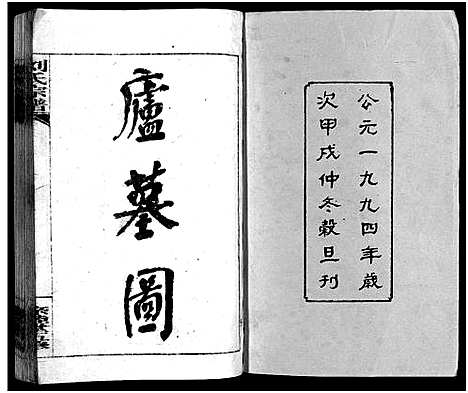 公元一九九四年歲
次甲戌仲冬穀旦刊
廬墓圖
刘氏宗譜